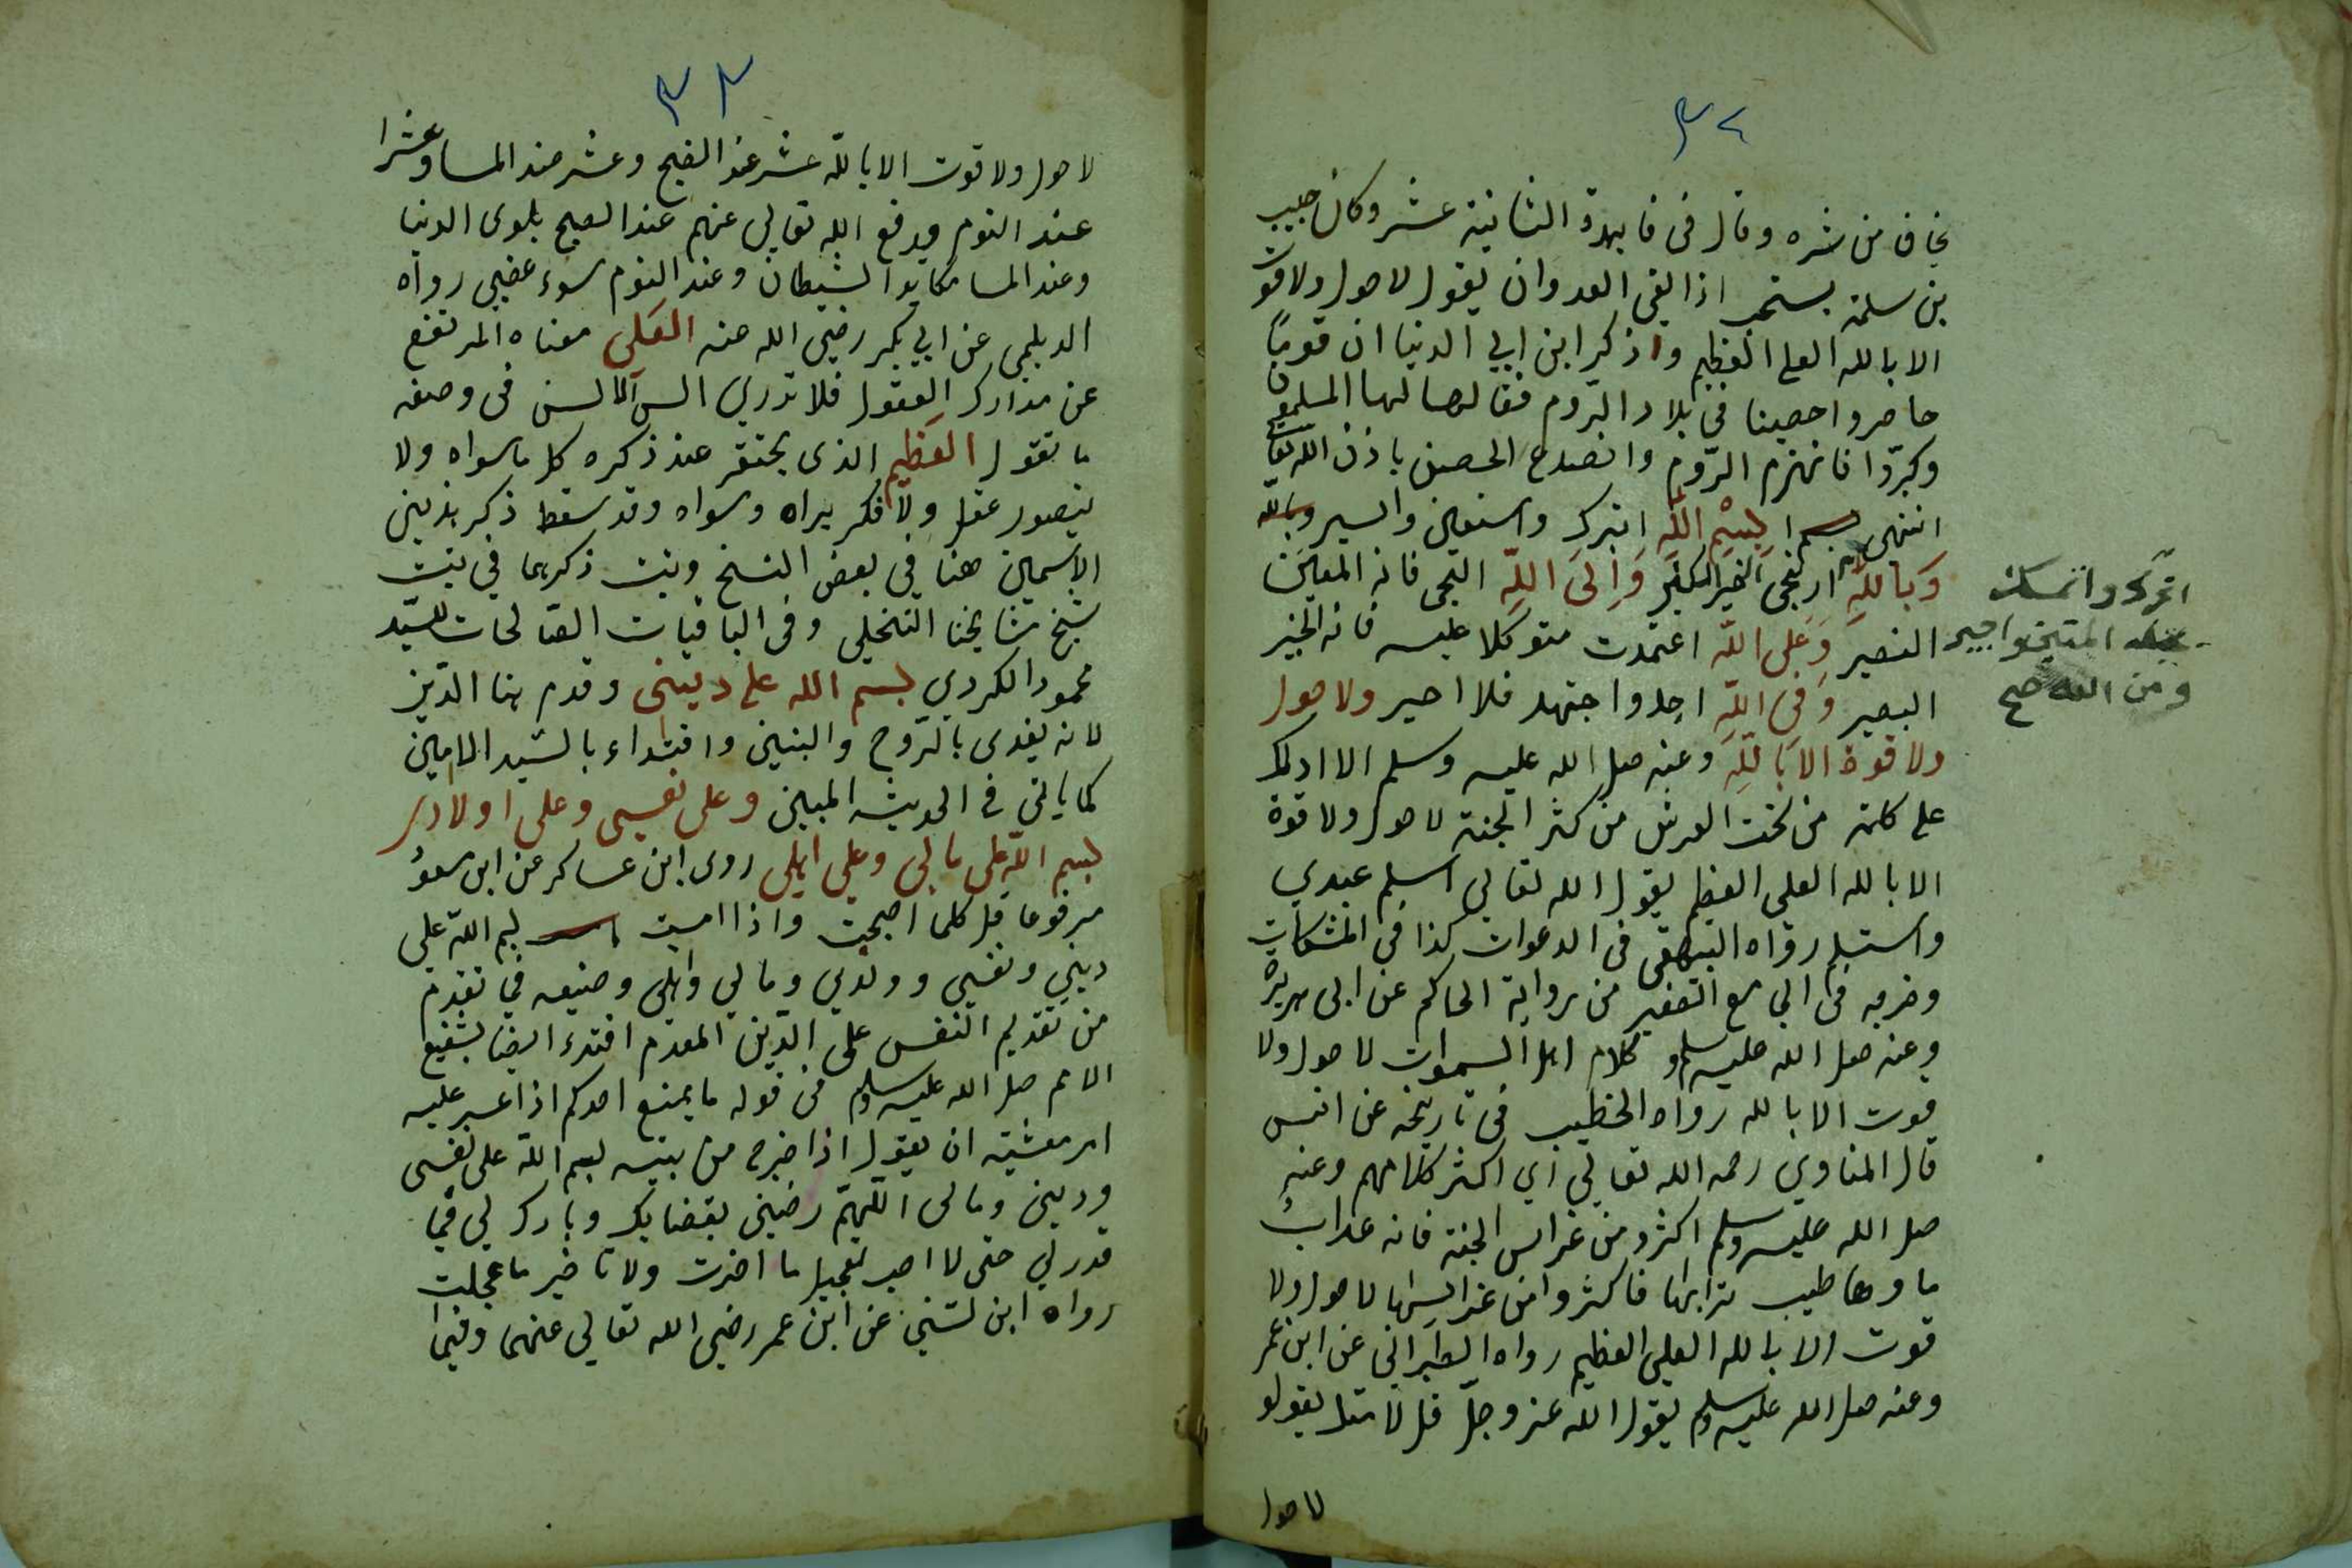 ٣٢
يخاف من شره وقال في فايدة الثانية عشر وكان حبيب
بن سلمة يستحب اذا لقي العدو ان يقول لا حول ولا قوت
الا بالله العلي العظيم واذكر ابن ابي الدنيا ان قوما
حاصروا حصينا في بلاد الروم فقالها لها المسلمون
وكبروا فانهزم الروم وانصدع الحصن باذن الله تعا
انتهى بسم الله اتبرك واستعين واسير
وبالله ارتجي الخير الكثير والى الله التجي فانه المعين
النصير وعلى الله اعتمدت متوكلا عليه فانه الخبير
البصير وفي الله اجد واجتهد فلا احير ولا حول
ولا قوة الا بالله وعنه صل الله عليه وسلم الا ادلك
على كلمة من تحت العرش من كثر الجنة لا حول ولا قوة
الا بالله العلي العظيم يقول الله تعالي اسلم عبدي
واستسلم رواه البيهقي في الدعوات كذا في المشكات
وخرجه في الجامع الصغير من رواية الحاكم عن ابي هريرة
وعنه صل الله عليه وسلم كلام اهل السموات لا حول ولا
قوت الا بالله رواه الخطيب في تاريخه عن انس
قال المناوي رحمه الله تعالي اي اكثر كلامهم وعنه
صل الله عليه وسلم اكثرو من غراس الجنة فانه عذاب
ماوها طيب ترابها فاكثروا من غراسها لا حول ولا
قوت الا بالله العلي العظيم رواه الطبراني عن ابن عمر
وعنه صل الله عليه وسلم يقول الله عز وجل قل لامتك يقولو
لا حول
واتمسك
المتين
ومن الله صح
٣٣
لا حول ولا قوت الا بالله عشر عند الصبح وعشر عند المسا وعشرا
عند النوم يدفع الله تعالي عنهم عند الصبح بلوى الدنيا
وعند المسا مكايد الشيطان وعند النوم سوء غضبي رواه
الديلمي عن ابي بكر رضي الله عنه العلي معناه المرتفع
عن مدارك العقول فلا تدري الالسن في وصفه
ما تقول العظيم الذي يحتقر عند ذكره كل ما سواه ولا
يتصور عقل ولا فكر يراه وسواه وقد سقط ذكر هذين
الاسمين هنا في بعض النسخ وثبت ذكرهما في ثبت
شيخ مشايخنا النخلي وفي الباقيات الصالحات للسيد
محمود الكردي بسم الله على ديني وقدم هنا الدين
لانه يفدى بالروح والبنين واقتداء بالسيد الامين
كما ياتي في الحديث المبين وعلى نفسي وعلى اولادي
بسم الله على مالي وعلى اهلي روى ابن عساكر عن ابن مسعود
مرفوعا قل كلما اصبحت واذا امسيت بسم الله على
ديني ونفسي وولدي ومالي واهلي وصنيعه في تقدم
من تقديم النفس على الدين المقدم اقتدء ايضا بشفيع
الامم صل الله عليه وسلم في قوله ما يمنع احدكم اذا عسر عليه
امر معشيته ان يقول اذا خرج من بيته بسم الله على نفسي
وديني ومالي اللهم رضني بقضايك وبارك لي فيما
قدر لي حتى لا احب تعجيل ما اخرت ولا تاخير ما عجلت
رواه ابن لسني عن ابن عمر رضي الله تعالي عنهما وفيما